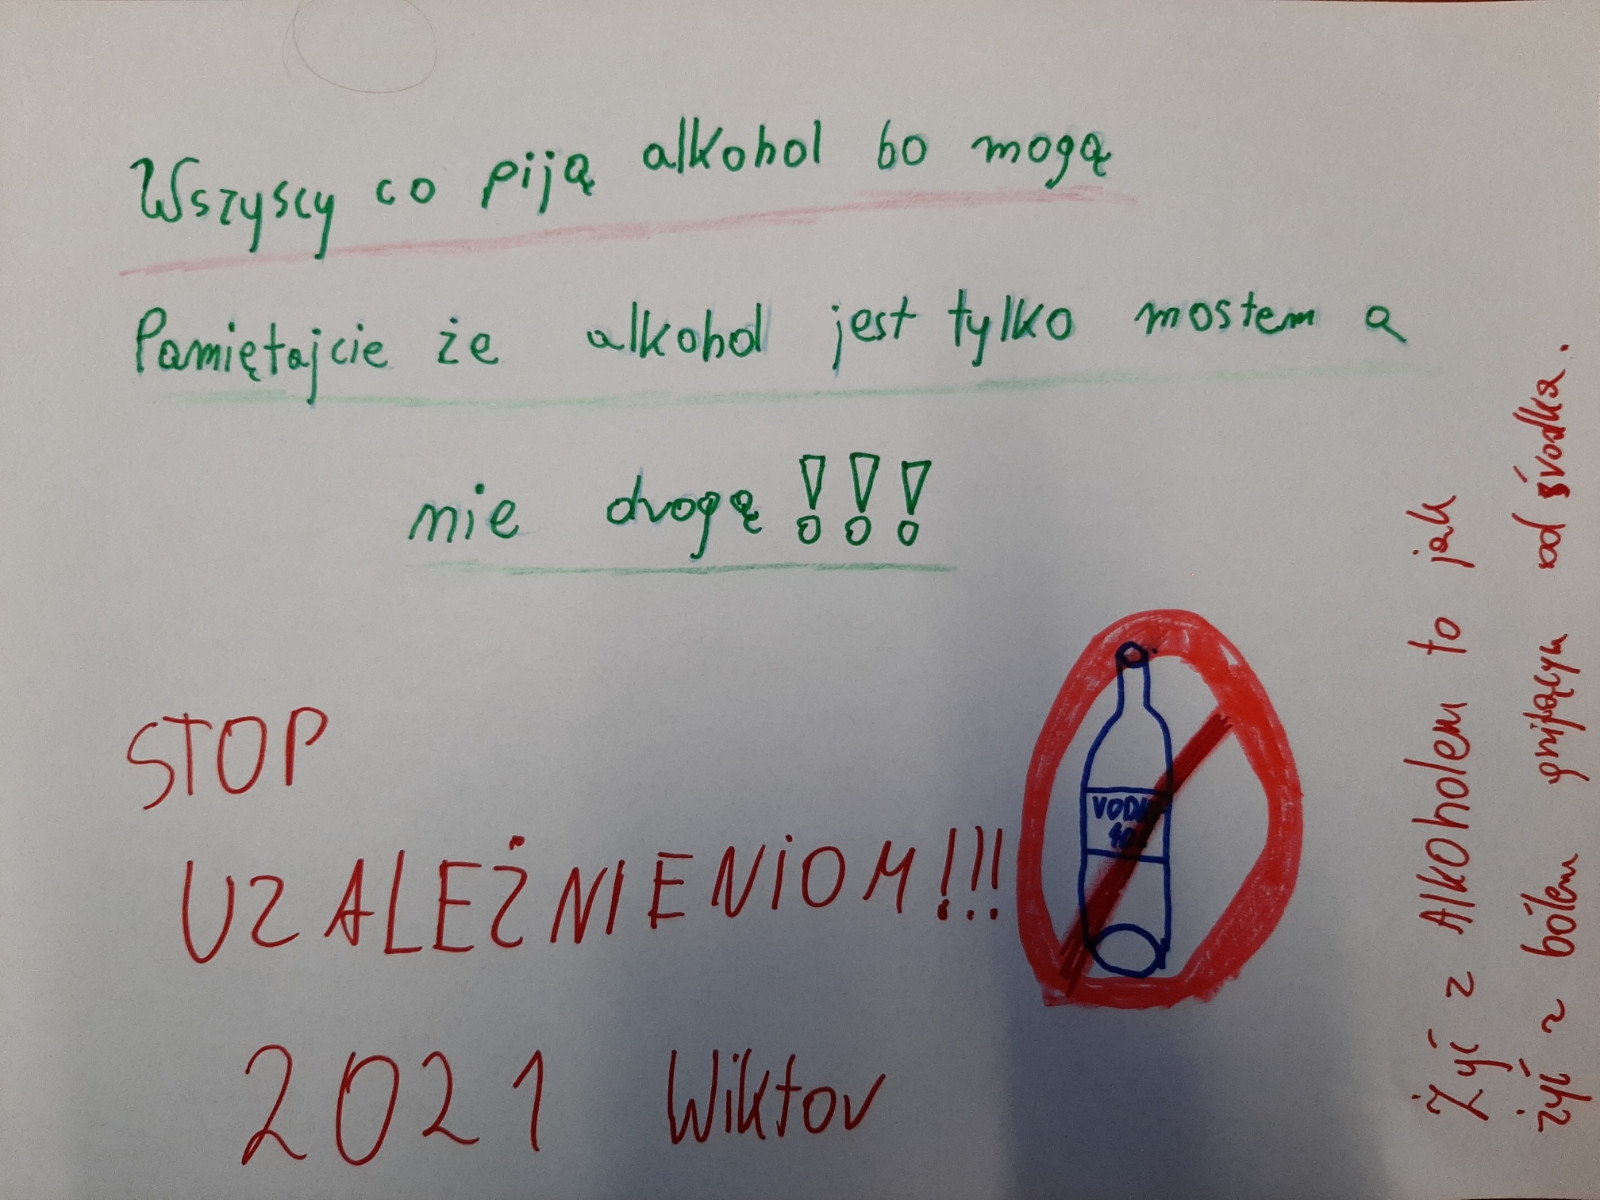 Wszyscy co piją alkohol bo mogą
Pamiętajcie że alkohol jest tylko mostem a
nie drogą !!!
STOP
UZALEŻNIENIOM!!!
2021 Wiktor
Żyć z Alkoholem to jak
żyć z bólem gnijącym od środka.